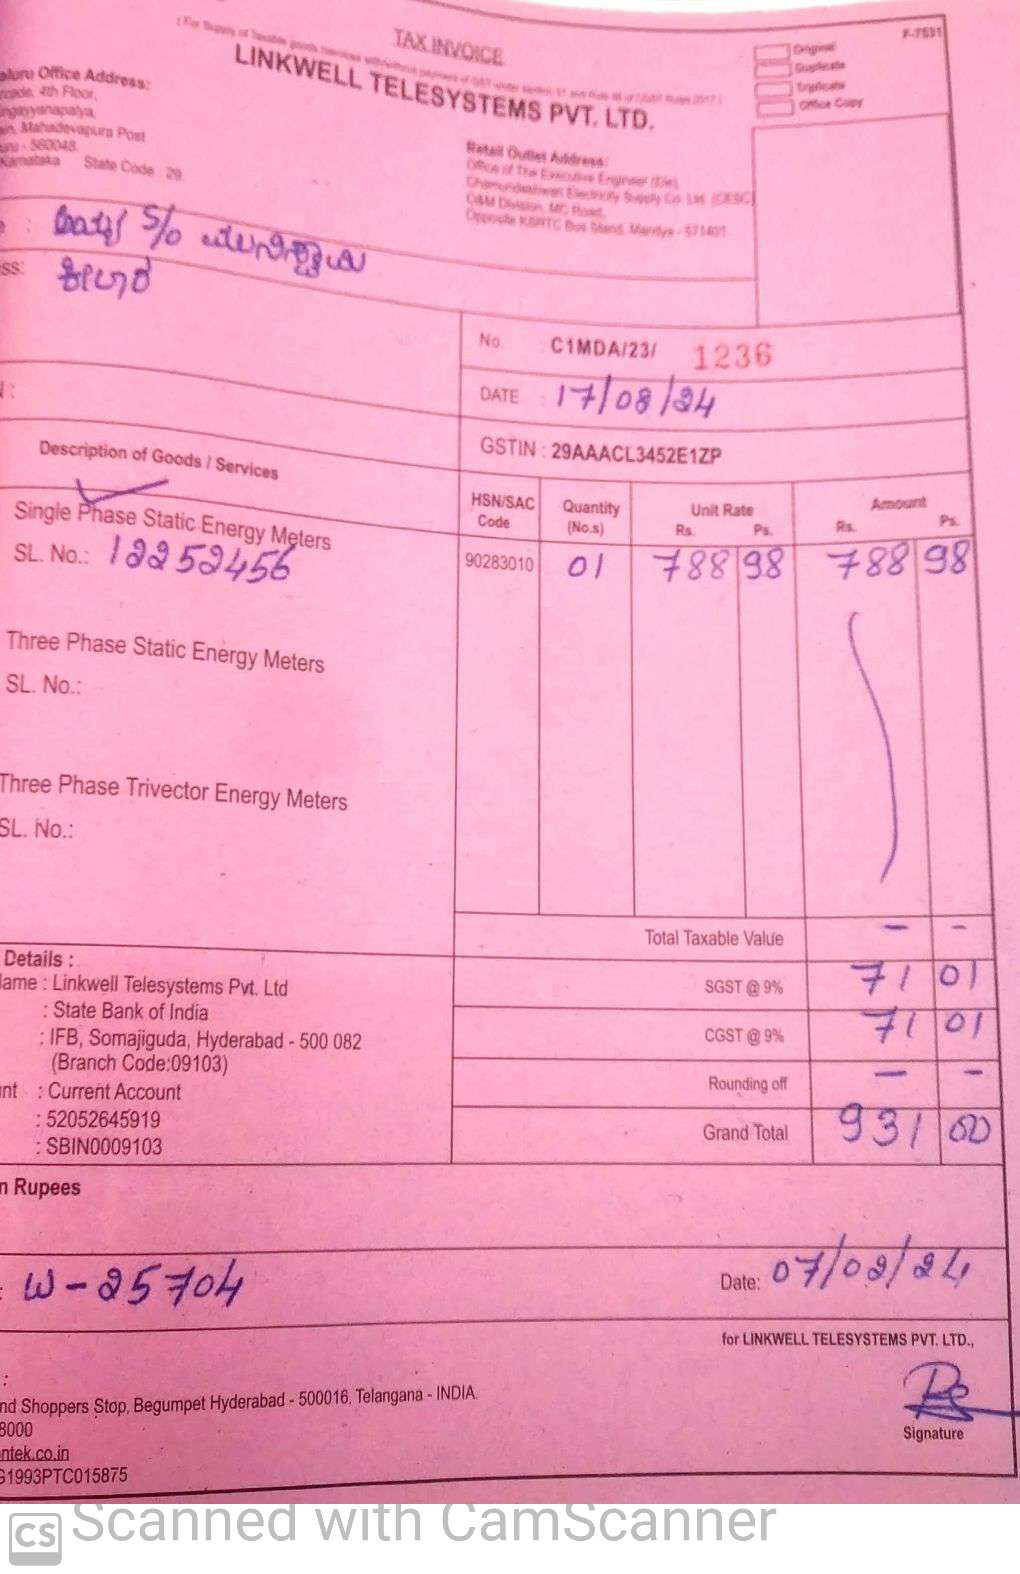 TAX INVOICE
F-7531
LINKWELL TELESYSTEMS PVT. LTD.
Original
Duplicate
Triplicate
Office Copy
Office Address:
4th Floor,
Mahadevapura Post
- 560048.
Karnataka State Code : 29
Retail Outlet Address:
Office of The Executive Engineer (Ele),
Chamundeshwari Electricity Supply Co. Ltd. (CESC)
O&M Division, MC Road,
Opposite KSRTC Bus Stand, Mandya - 571401
S/o
No. C1MDA/23/ 1236
DATE : 17/08/24
GSTIN : 29AAACL3452E1ZP
Description of Goods / Services
HSN/SAC Code
Quantity (No.s)
Unit Rate Rs. Ps.
Amount Rs. Ps.
Single Phase Static Energy Meters
SL. No.: 12252456 90283010 01 788 98 788 98
Three Phase Static Energy Meters
SL. No.:
Three Phase Trivector Energy Meters
SL. No.:
Total Taxable Value - -
Details :
: Linkwell Telesystems Pvt. Ltd
SGST @ 9% 71 01
: State Bank of India
: IFB, Somajiguda, Hyderabad - 500 082
CGST @ 9% 71 01
(Branch Code:09103)
: Current Account
Rounding off - -
: 52052645919
: SBIN0009103
Grand Total 931 00
Rupees
W-25704
Date: 07/02/24
for LINKWELL TELESYSTEMS PVT. LTD.,
Shoppers Stop, Begumpet Hyderabad - 500016, Telangana - INDIA.
8000
ntek.co.in
G1993PTC015875
Signature
CS Scanned with CamScanner